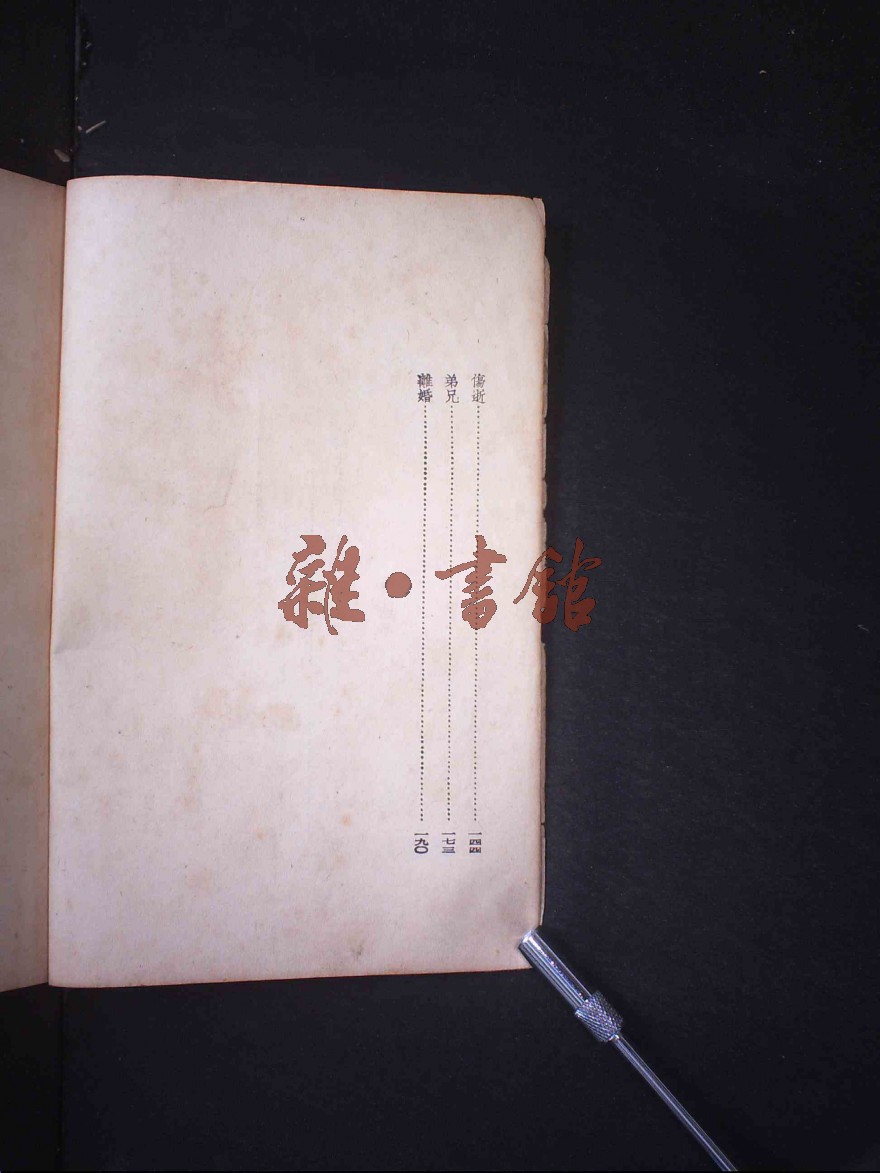 傷逝……一四四
弟兄……一七三
離婚……一九〇
雜·書館